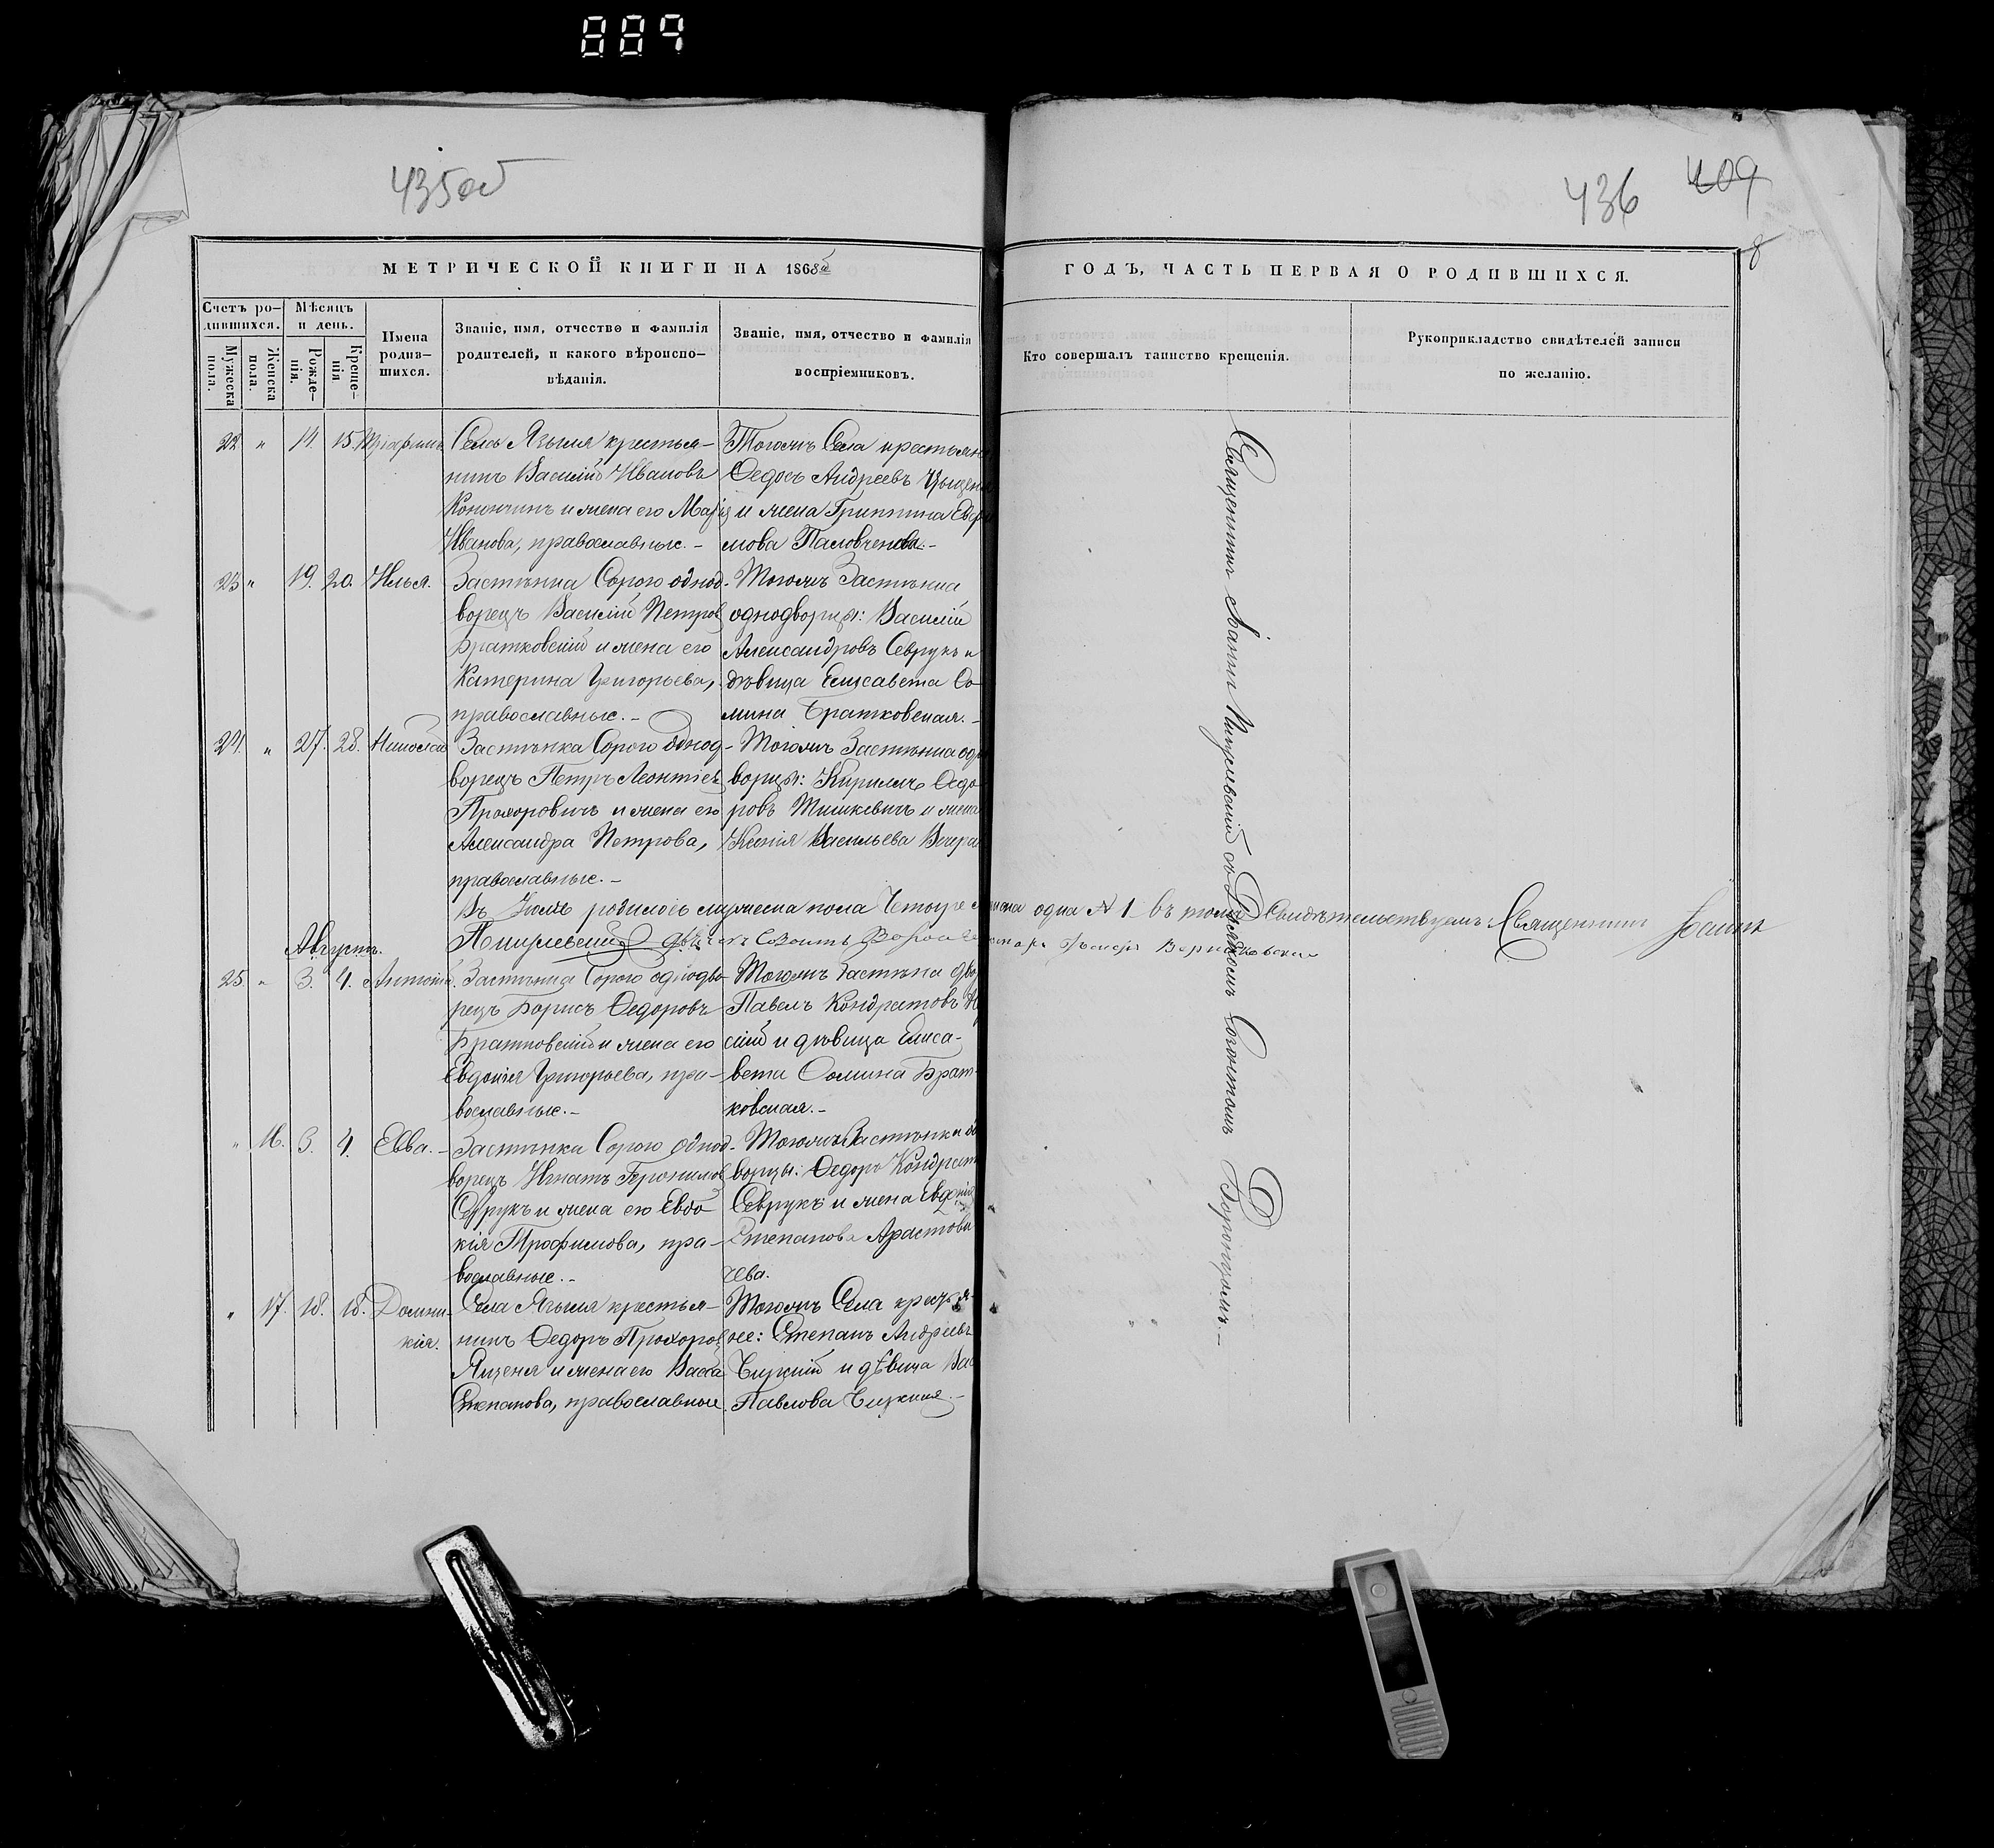 889
435об
436 409
8
МЕТРИЧЕСКОЙ КНИГИ НА 1868й
ГОДЪ, ЧАСТЬ ПЕРВАЯ О РОДИВШИХСЯ.
Счетъ ро-
дившихся.
Мужеска пола.
Женска пола.
Мѣсяцъ
и день.
Рожде-
нія.
Креще-
нія
Имена
родив-
шихся.
Званіе, имя, отчество и фамилія
родителей, и какого вѣроиспо-
вѣданія.
Званіе, имя, отчество и фамилія
воспріемниковъ.
Кто совершалъ таинство крещенія.
Рукоприкладство свидѣтелей записи
по желанію.
22. " 14. 15.
Села Языля крестья-
нинъ Василій Ивановъ
и жена его
Иванова, православные.-
Тогожъ Села крестьяне
Федосъ Андреевъ
и жена Гриппина
мова
23 " 19. 20. Илья.
Застѣнка Сорого однод-
ворецъ Василій Петров
Братковскій и жена его
Катерина Григорьева,
православные.-
Тогожъ Застѣнка
однодворцы: Василій
Александровъ Севрукъ и
дѣвица Елисавета Ѳо-
мина Братковская.-
24. " 27. 28. Николай
Застѣнка Сорого однод-
ворецъ Петръ Леонтіев
Прохоровичъ и жена его
Александра Петрова,
православные.-
Тогожъ Застѣнка одно
ворцы: Кириллъ Ѳедо
ровъ Тишкевичъ и жена
Ксенія Васильева
Въ Іюлѣ родилось мужеска пола четыре женска одна № 1 въ томъ Свидѣтельствуемъ: Священникъ Іоаннъ
Августъ.
25. " 3. 4. Антоній.
Застѣнка Сорого однодво
рецъ Борисъ Ѳедоровъ
Братковскій и жена его
Евдокія Григорьева, пра-
вославные.-
Тогожъ Застѣнка
Павелъ Кондратовъ
скій и дѣвица Елиса-
вета Ѳомина Брат-
ковская.-
" 16. 3. 4. Евва.-
Застѣнка Сорого однод-
ворецъ Игнатъ
Севрукъ и жена его Евдо
кія Трофимова, пра-
вославные.-
Тогожъ Застѣнка
ворцы: Ѳедоръ Кондрат
Севрукъ и жена Евдокія
Степанова
чева.
" 17. 18. 18. Домни-
кія.
Села Языля крестья-
нинъ Ѳедоръ Прохоров
Ященя и жена его Васса
Степанова, православные.
Тогожъ Села крестья-
не: Степанъ Андреевъ
Бицкій и дѣвица
Павлова Бицкая.-
Священникъ Іоаннъ съ Дьячкомъ Созонтомъ Воронцомъ.-